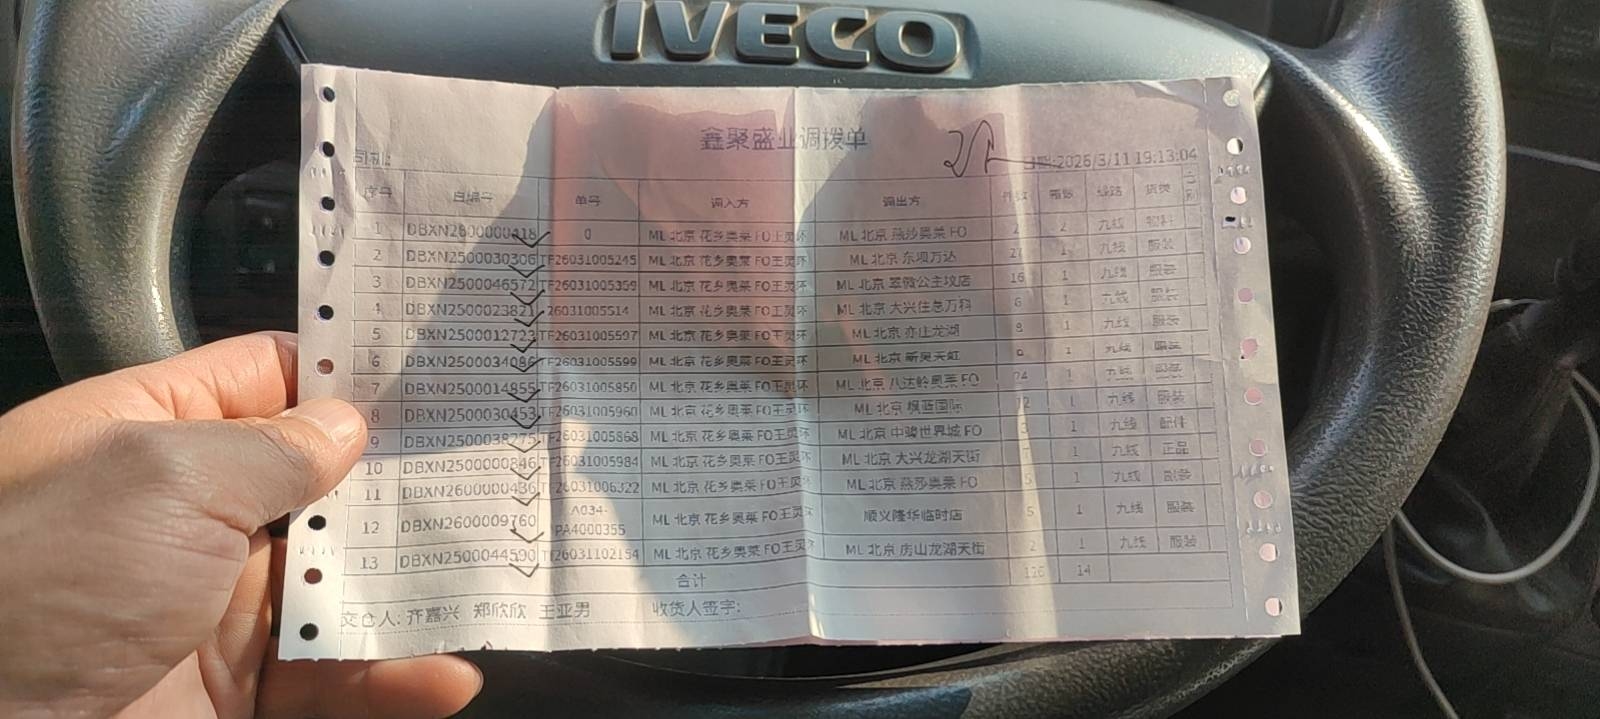 IVECO
鑫聚盛业调拨单
司机: 日期:2026/3/11 19:13:04
序号 自编号 单号 调入方 调出方 件数 箱数 线路 货类
1 DBXN2600000418 0 ML 北京 花乡奥莱 FO王灵环 ML 北京 燕沙奥莱 FO 2 2 九线 物料
2 DBXN2500030306 TF26031005245 ML 北京 花乡奥莱 FO王灵环 ML 北京 东坝万达 27 1 九线 服装
3 DBXN2500046572 TF26031005359 ML 北京 花乡奥莱 FO王灵环 ML 北京 翠微公主坟店 16 1 九线 服装
4 DBXN2500023821 26031005514 ML 北京 花乡奥莱 FO王灵环 ML 北京 大兴住总万科 6 1 九线 服装
5 DBXN2500012723 TF26031005597 ML 北京 花乡奥莱 FO王灵环 ML 北京 亦庄龙湖 8 1 九线 服装
6 DBXN2500034086 TF26031005599 ML 北京 花乡奥莱 FO王灵环 ML 北京 新奥天虹 1 九线 服装
7 DBXN2500014855 TF26031005850 ML 北京 花乡奥莱 FO王灵环 ML 北京 八达岭奥莱 FO 24 1 九线 服装
8 DBXN2500030453 TF26031005960 ML 北京 花乡奥莱 FO王灵环 ML 北京 枫蓝国际 12 1 九线 服装
9 DBXN2500038275 TF26031005868 ML 北京 花乡奥莱 FO王灵环 ML 北京 中骏世界城 FO 3 1 九线 配件
10 DBXN2500000846 TF26031005984 ML 北京 花乡奥莱 FO王灵环 ML 北京 大兴龙湖天街 1 九线 正品
11 DBXN2600000436 TF26031006322 ML 北京 花乡奥莱 FO王灵环 ML 北京 燕莎奥莱 FO 5 1 九线 服装
12 DBXN2600009760 A034-PA4000355 ML 北京 花乡奥莱 FO王灵环 顺义隆华临时店 5 1 九线 服装
13 DBXN2500044590 TF26031102154 ML 北京 花乡奥莱 FO王灵环 ML 北京 房山龙湖天街 2 1 九线 服装
合计 126 14
交仓人: 齐嘉兴 郑欣欣 王亚男 收货人签字: